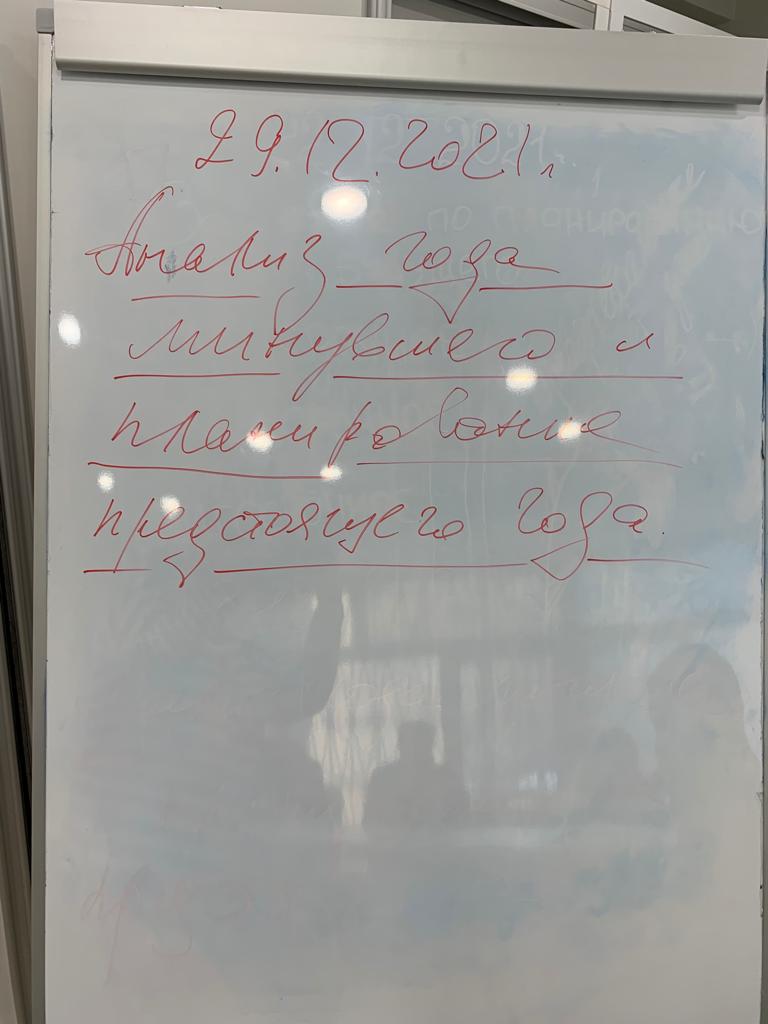 29.12.2021г
Анализ года
минувшего и
планирование
предстоящего года.
по планированию